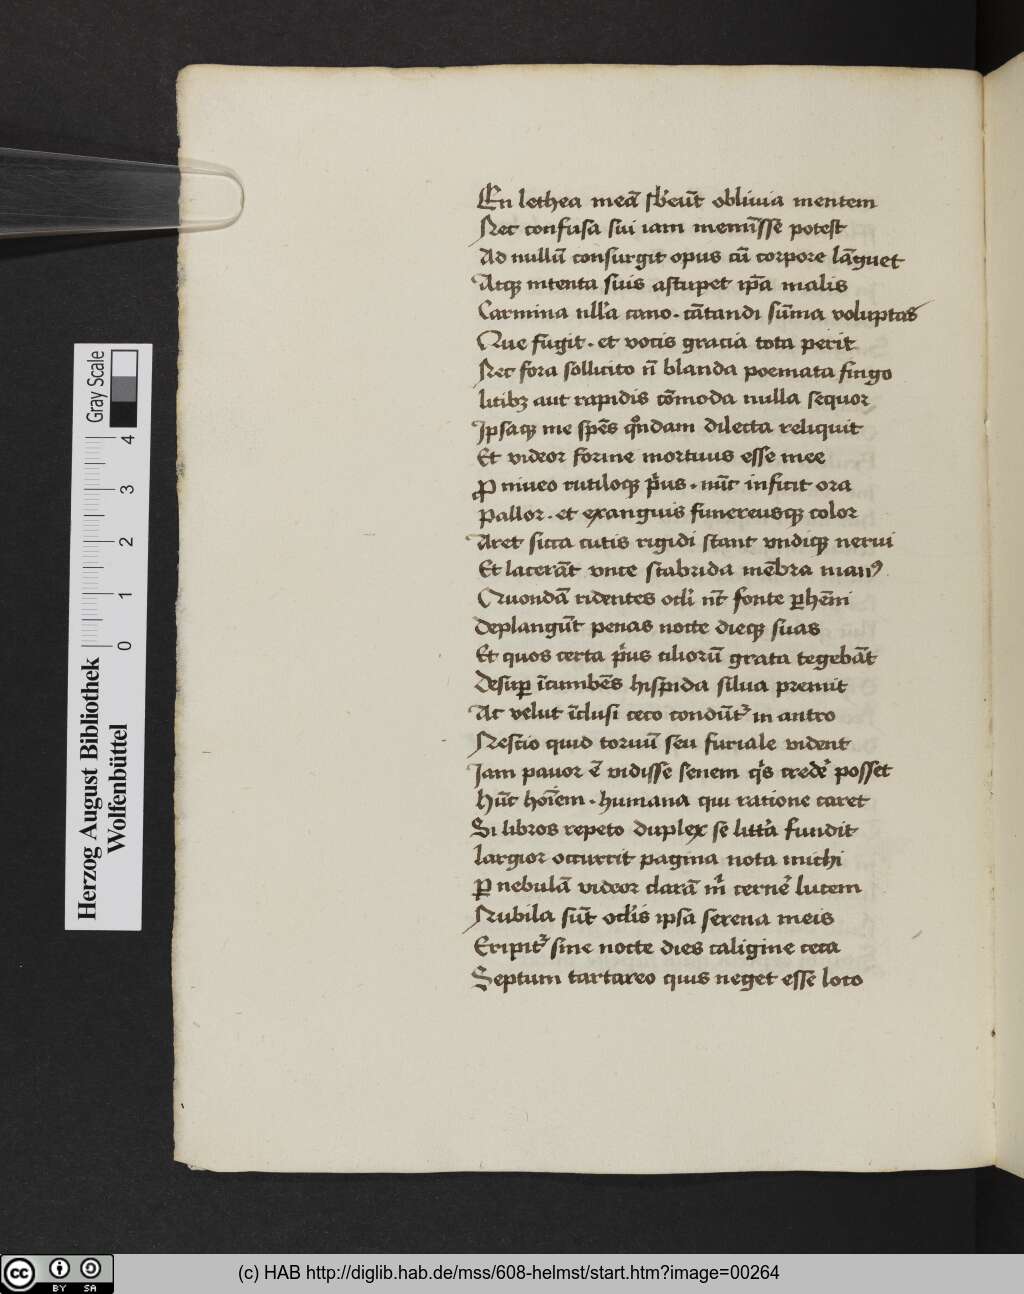 En lethea meā sb̓eūt obliuia mentem
Nec confusa sui iam meminīsse potest
Ad nullū consurgit opus cū corpore lāguet
Atqꝫ intenta suis astupet ip̄a malis
Carmina null̓a cano · cātandi sūma voluptas
Que fugit · et vocis gracia tota perit
Nec fora sollicito n̄ blanda poemata fingo
litibꝫ aut rapidis cōmoda nulla sequor
Ipsaqꝫ me spēs qͦndam dilecta reliquit
Et videor forme mortuus esse mee
Ꝓ niueo rutiloqꝫ pͥus · nūc inficit ora
Pallor · et exanguis funereusqꝫ color
Aret sicca cutis rigidi stant vndiqꝫ nerui
Et lacerāt vnce scabrida mēbra manꝰ
Quondā ridentes ocl̓i nc̄ fonte ꝑhēni
Deplangūt penas nocte dieqꝫ suas
Et quos certa pͥus ciliorū grata tegebāt
Desuꝑ īcumbēs hispida silua premit
Ac velut īclusi ceco condūtᷣ in antro
Nescio quid toruū seu furiale vident
Iam pauor ē vidisse senem qͥs credē posset
hūc hoīem · humana qui ratione caret
Si libros repeto duplex se litt̓a fundit
largior occurrit pagina nota michi
Ꝑ nebulā videor clarā m̓ cerne̓ lucem
Nubila sūt ocl̓is ipsa serena meis
Eripitᷣ sine nocte dies caligine ceca
Septum tartareo quis neget esse loco
Herzog August Bibliothek
Wolfenbüttel
Gray Scale
0 1 2 3 4
cc BY SA
(c) HAB http://diglib.hab.de/mss/608-helmst/start.htm?image=00264